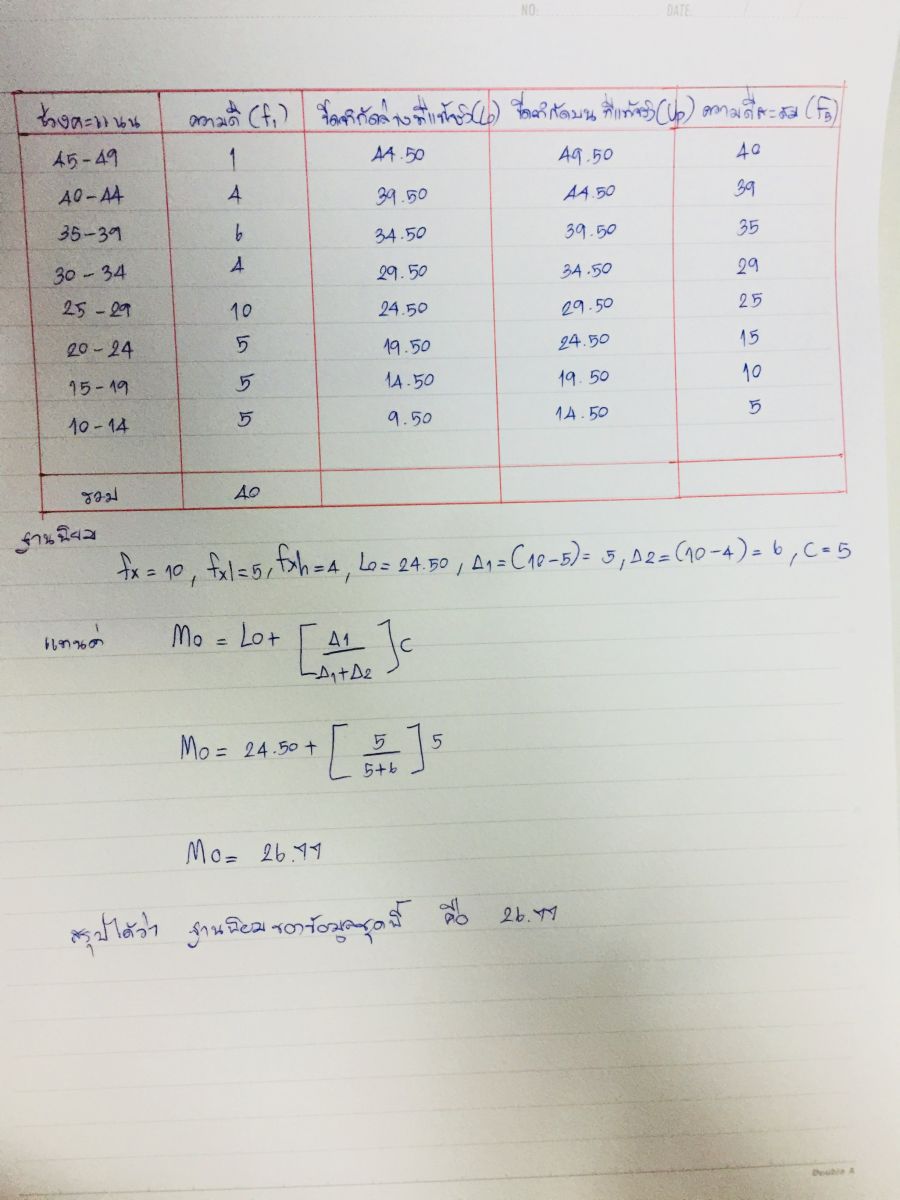 NO: DATE: / /
ช่วงคะแนน ความถี่ (f₁) ขีดจำกัดล่างที่แท้จริง(Lo) ขีดจำกัดบน ที่แท้จริง(Up) ความถี่สะสม (F₃)
45-49 1 44.50 49.50 40
40-44 4 39.50 44.50 39
35-39 6 34.50 39.50 35
30-34 4 29.50 34.50 29
25-29 10 24.50 29.50 25
20-24 5 19.50 24.50 15
15-19 5 14.50 19.50 10
10-14 5 9.50 14.50 5
รวม 40
ฐานนิยม
fx = 10, fxl=5, fxh=4, Lo=24.50, Δ1=(10-5)=5, Δ2=(10-4)=6, C=5
แทนค่า Mo = Lo+ [Δ1/Δ1+Δ2]C
Mo = 24.50+ [5/5+6]5
Mo= 26.77
สรุปได้ว่า ฐานนิยมของข้อมูลชุดนี้ คือ 26.77
Double A